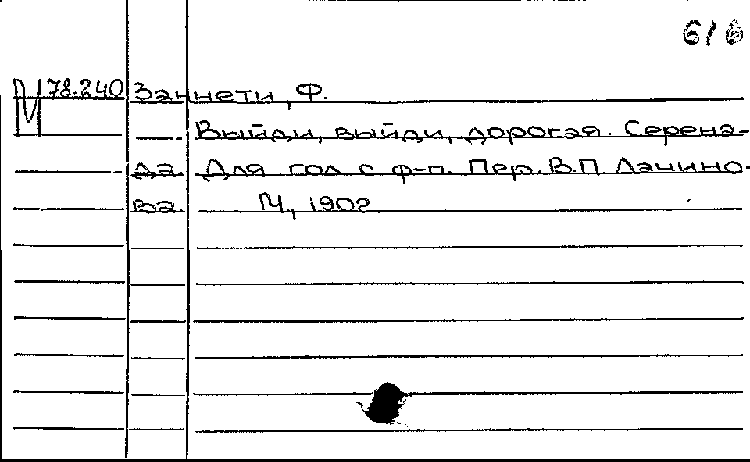 б/в
М 78.240 Заннети, Ф.
Выйди, выйди, дорогая. Серена-
да. Для гол с ф-п. Пер. В.П Лачино-
ва. М, 1902